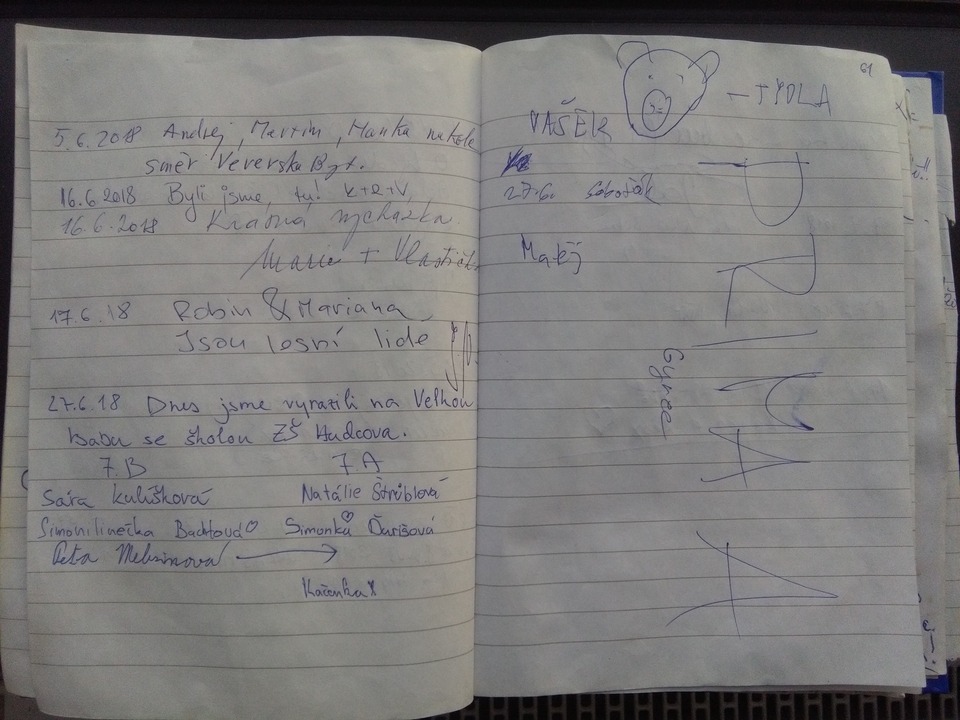 5.6.2018 Andrej, Martin, Marika na kole
směr Veverská Byt.
16.6.2018 Byli jsme tu! K+R+V
16.6.2018 Krásná vycházka.
Marie + Vlastička
17.6.18 Robin & Mariana
Jsou lesní lidé
27.6.18 Dnes jsme vyrazili na Velkou
babu se školou ZŠ Hudcova.
7.B 7.A
Sára Kulišková Natálie Štréblová
Simonilinečka Simonka Ďurišová
Péťa
Kačenka
61
VAŠEK – TYDLA
27.6. Soboťák
Matěj